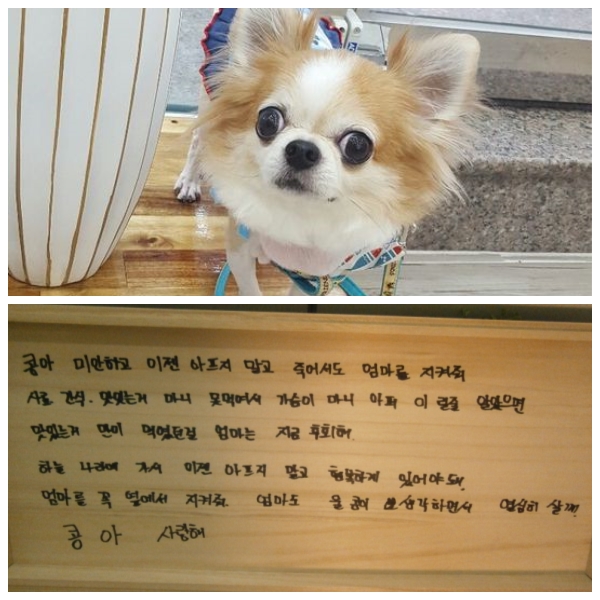 콩아 미안하고 이젠 아프지 말고 죽어서도 엄마를 지켜줘
사료 간식. 맛있는거 마니 못먹여서 가슴이 마니 아퍼 이 럴줄 알았으면
맛있는거 만이 먹였을걸 엄마는 지금 후회해
하늘 나라에 가서 이젠 아프지 말고 행복하게 있어야돼.
엄마를 꼭 옆에서 지켜줘. 엄마도 울 콩이 생각하면서 열심히 살께.
콩아 사랑해